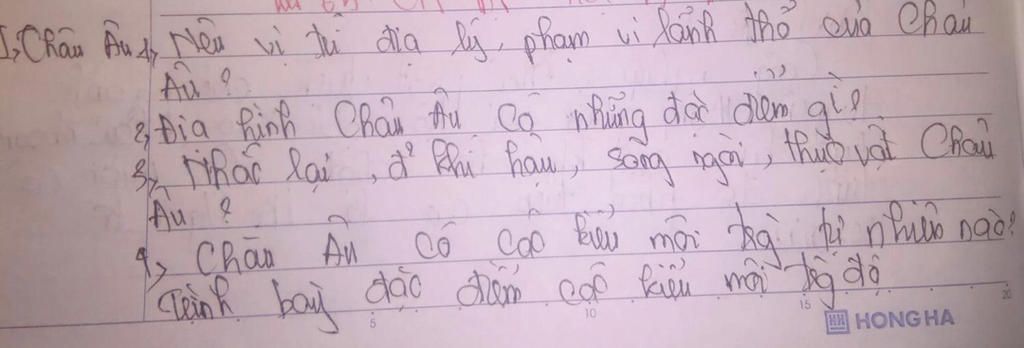 I, Châu Âu 1, Nêu vị trí địa lý, phạm vi lãnh thổ của Châu
Âu ?
2, Địa hình Châu Âu có những đặc điểm gì?
3, Nhắc lại, đ² khí hậu, sông ngòi, thực vật Châu
Âu ?
4, Châu Âu có các kiểu môi trg tự nhiên nào?
Trình bày đặc điểm các kiểu môi trg đó
5 10 15 20
HH HONG HA